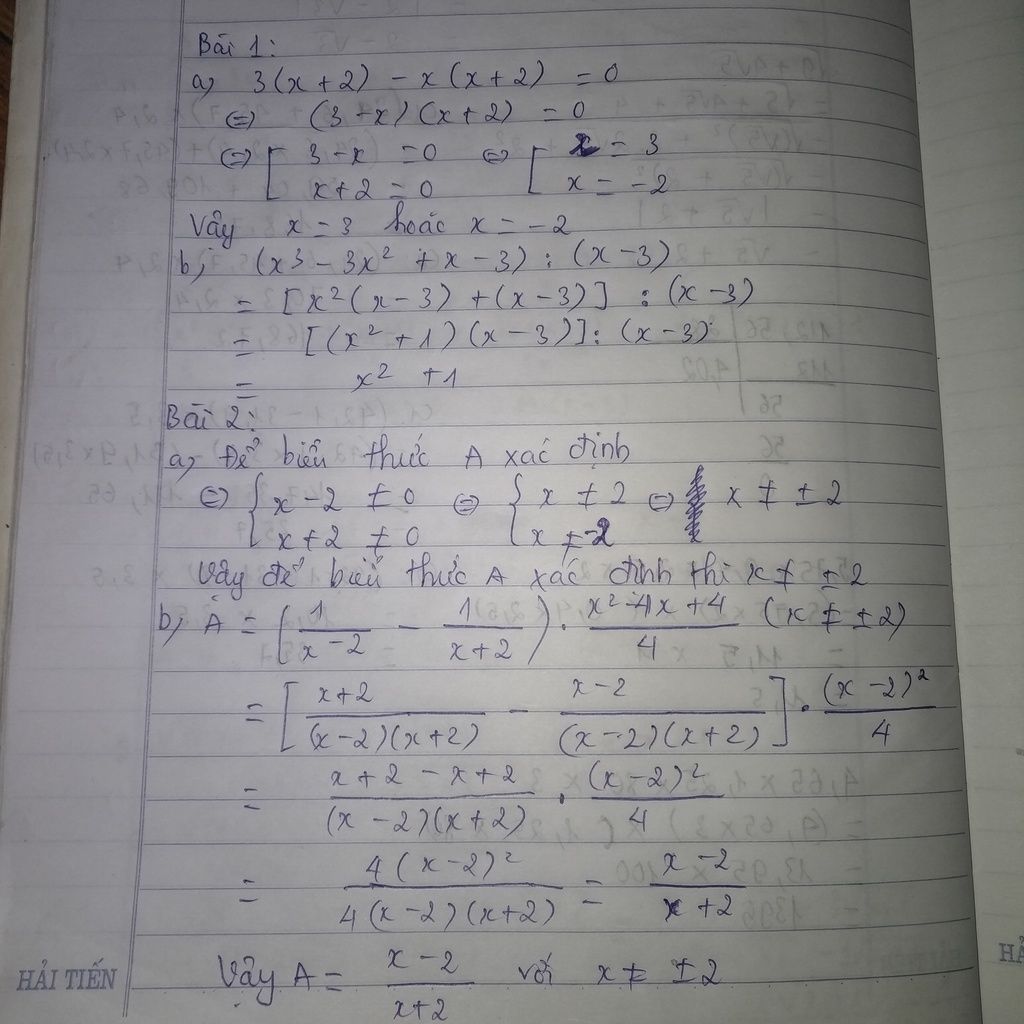 Bài 1:
a, 3(x+2) - x(x+2) = 0
⇔ (3-x)(x+2) = 0
⇔ [ 3-x = 0 ⇔ [ x = 3
x+2 = 0 x = -2
Vậy x = 3 hoặc x = -2
b, (x³ - 3x² + x - 3) : (x-3)
= [x²(x-3) + (x-3)] : (x-3)
= [(x²+1)(x-3)] : (x-3)
= x² + 1
Bài 2:
a, Để biểu thức A xác định
⇔ { x-2 ≠ 0 ⇔ { x ≠ 2 ⇔ x ≠ ±2
x+2 ≠ 0 x ≠ -2
Vậy để biểu thức A xác định thì x ≠ ±2
b, A = (1/(x-2) - 1/(x+2)) . (x²-4x+4)/4 (x ≠ ±2)
= [(x+2)/((x-2)(x+2)) - (x-2)/((x-2)(x+2))] . (x-2)²/4
= (x+2-x+2)/((x-2)(x+2)) . (x-2)²/4
= 4(x-2)²/(4(x-2)(x+2)) = (x-2)/(x+2)
Vậy A = (x-2)/(x+2) với x ≠ ±2
HẢI TIẾN